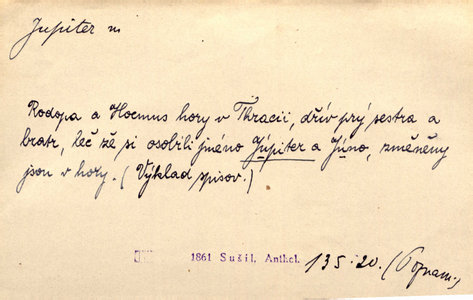 Jupiter m
Rodopa a Hoemus hory v Thracii, dřív prý sestra a
bratr, leč že si osobili jméno Júpiter a Júno, změněny
jsou v hory. (Výklad spisov.)
1861 Sušil, Anthol. 135.20. (Poznam.)